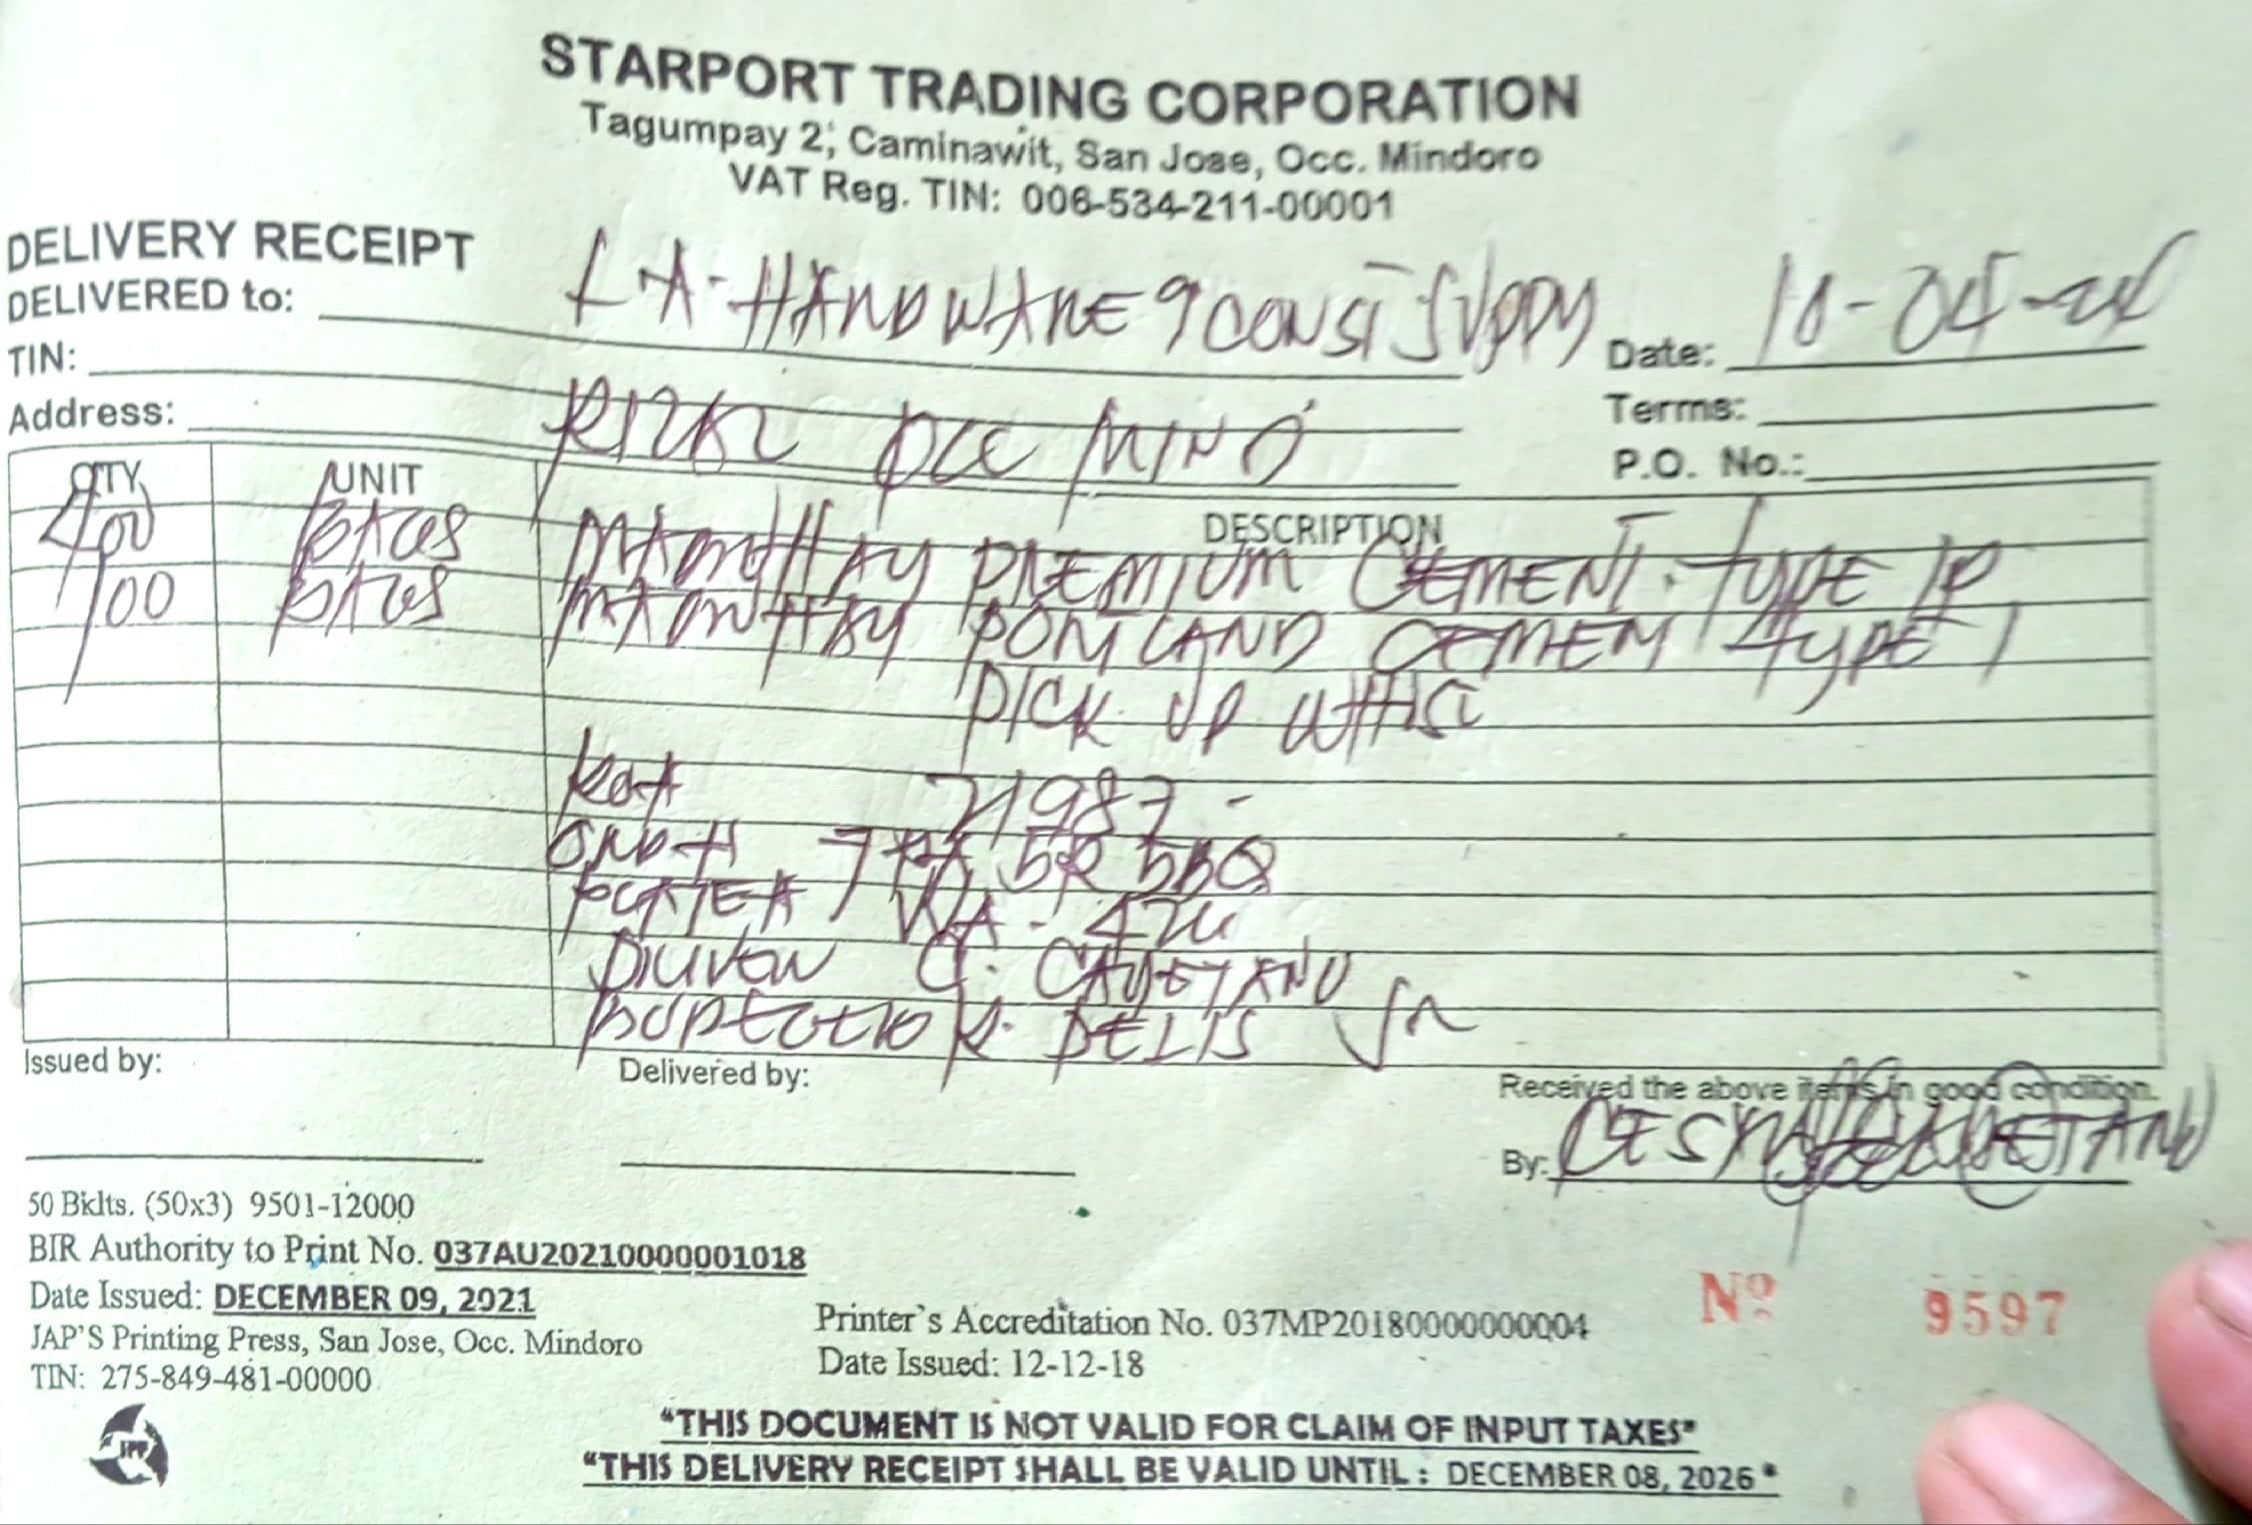 STARPORT TRADING CORPORATION
Tagumpay 2, Caminawit, San Jose, Occ. Mindoro
VAT Reg. TIN: 006-534-211-00001
DELIVERY RECEIPT
DELIVERED to: LA-HARDWARE & CONST SUPPY
Date: 10-05-24
TIN:
Terms:
Address: RIZAL OCC MINO
P.O. No.:
QTY UNIT DESCRIPTION
400 BAGS PREMIUM CEMENT TYPE 1P
100 BAGS PORTLAND CEMENT TYPE 1
PICK UP WHSE
21987 -
CAYETANO
JR
Issued by:
Delivered by:
Received the above items in good condition.
By: CAYETANO
50 Bklts. (50x3) 9501-12000
BIR Authority to Print No. 037AU20210000001018
Date Issued: DECEMBER 09, 2021
JAP'S Printing Press, San Jose, Occ. Mindoro
TIN: 275-849-481-00000
Printer's Accreditation No. 037MP20180000000004
Date Issued: 12-12-18
Nº 9597
JPP
"THIS DOCUMENT IS NOT VALID FOR CLAIM OF INPUT TAXES"
"THIS DELIVERY RECEIPT SHALL BE VALID UNTIL : DECEMBER 08, 2026"